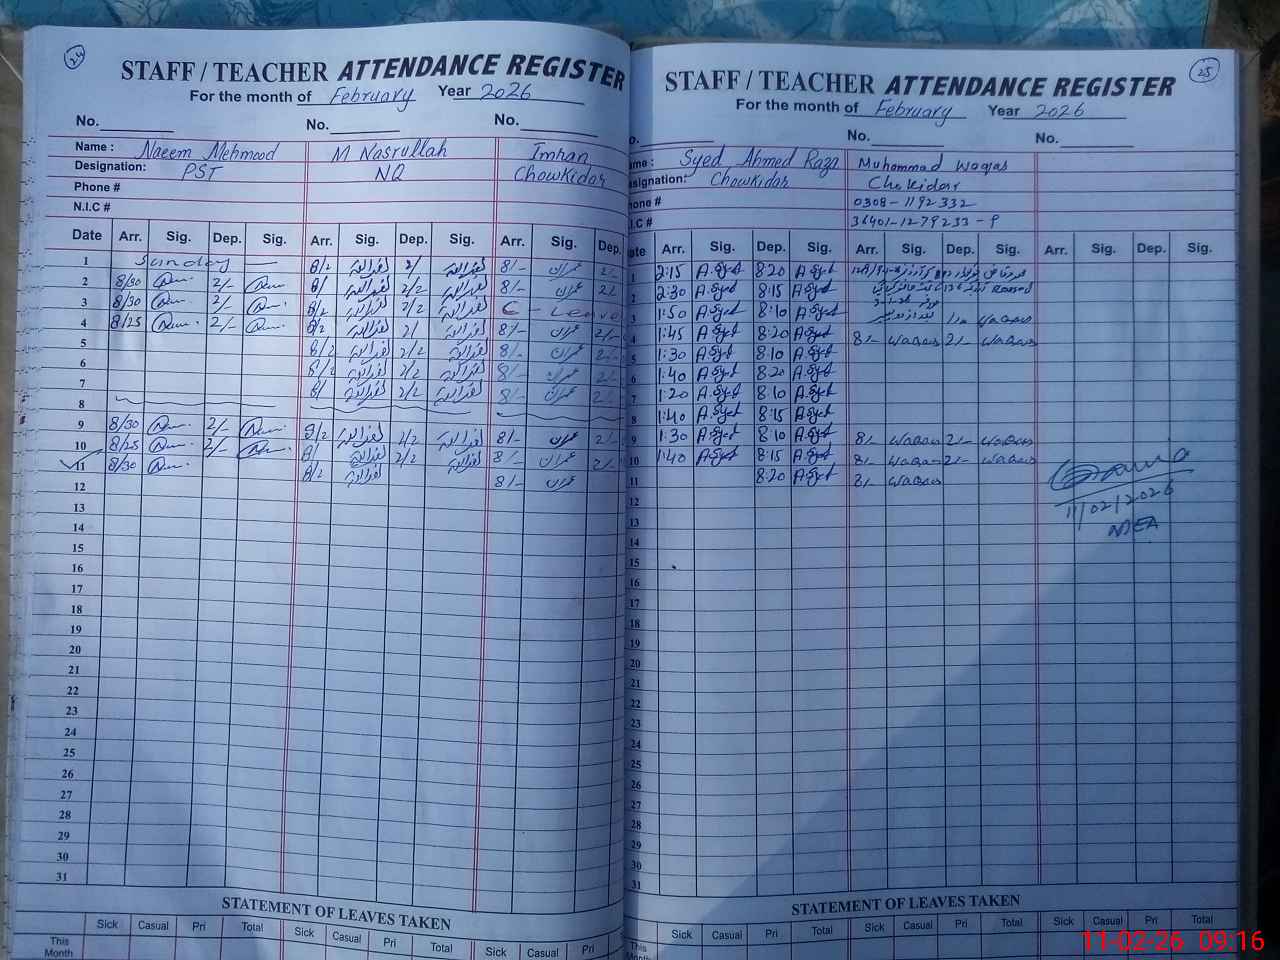 24
STAFF / TEACHER ATTENDANCE REGISTER
For the month of February Year 2026
No. No. No.
Name : Naeem Mehmood M Nasrullah Imran
Designation: PST NQ Chowkidar
Phone #
N.I.C #
Date Arr. Sig. Dep. Sig. Arr. Sig. Dep. Sig. Arr. Sig. Dep.
1 Sunday 8/2 2/ 8/- عمران 2/-
2 8/30 2/- 8/ 2/2 8/- عمران 2/-
3 8/30 2/- 8/2 2/2 C - Leave
4 8/25 2/- 8/2 2/ 8/- عمران 2/-
5 8/2 2/2 8/- عمران 2/-
6 8/2 2/2 8/- عمران 2/-
7 8/ 2/2 8/- عمران 2/-
8
9 8/30 2/- 8/2 2/2 8/- عمران 2/-
10 8/25 2/- 8/ 2/2 8/- عمران 2/-
11 8/30 8/2 8/- عمران
12
13
14
15
16
17
18
19
20
21
22
23
24
25
26
27
28
29
30
31
STATEMENT OF LEAVES TAKEN
Sick Casual Pri Total Sick Casual Pri Total Sick Casual Pri
This Month
25
STAFF / TEACHER ATTENDANCE REGISTER
For the month of February Year 2026
o. No. No.
ame : Syed Ahmed Raza Muhammad Waqas
signation: Chowkidar Chokidar
hone # 0308-1192332
I.C # 36401-1279233-9
ate Arr. Sig. Dep. Sig. Arr. Sig. Dep. Sig. Arr. Sig. Dep. Sig.
1 2:15 A.Syed 8:20 A.Syed
2 2:30 A.Syed 8:15 A.Syed
3 1:50 A.Syed 8:10 A.Syed Waqas
4 1:45 A.Syed 8:20 A.Syed 8/- Waqas 2/- Waqas
5 1:30 A.Syed 8:10 A.Syed
6 1:40 A.Syed 8:20 A.Syed
7 1:20 A.Syed 8:10 A.Syed
8 1:40 A.Syed 8:15 A.Syed
9 1:30 A.Syed 8:10 A.Syed 8/- Waqas 2/- Waqas
10 1:40 A.Syed 8:15 A.Syed 8/- Waqas 2/- Waqas
11 8:20 A.Syed 8/- Waqas
11/02/2026
12
13
14
15
16
17
18
19
20
21
22
23
24
25
26
27
28
29
30
31
STATEMENT OF LEAVES TAKEN
Sick Casual Pri Total Sick Casual Pri Total Sick Casual Pri Total
This Month
11-02-26 09:16